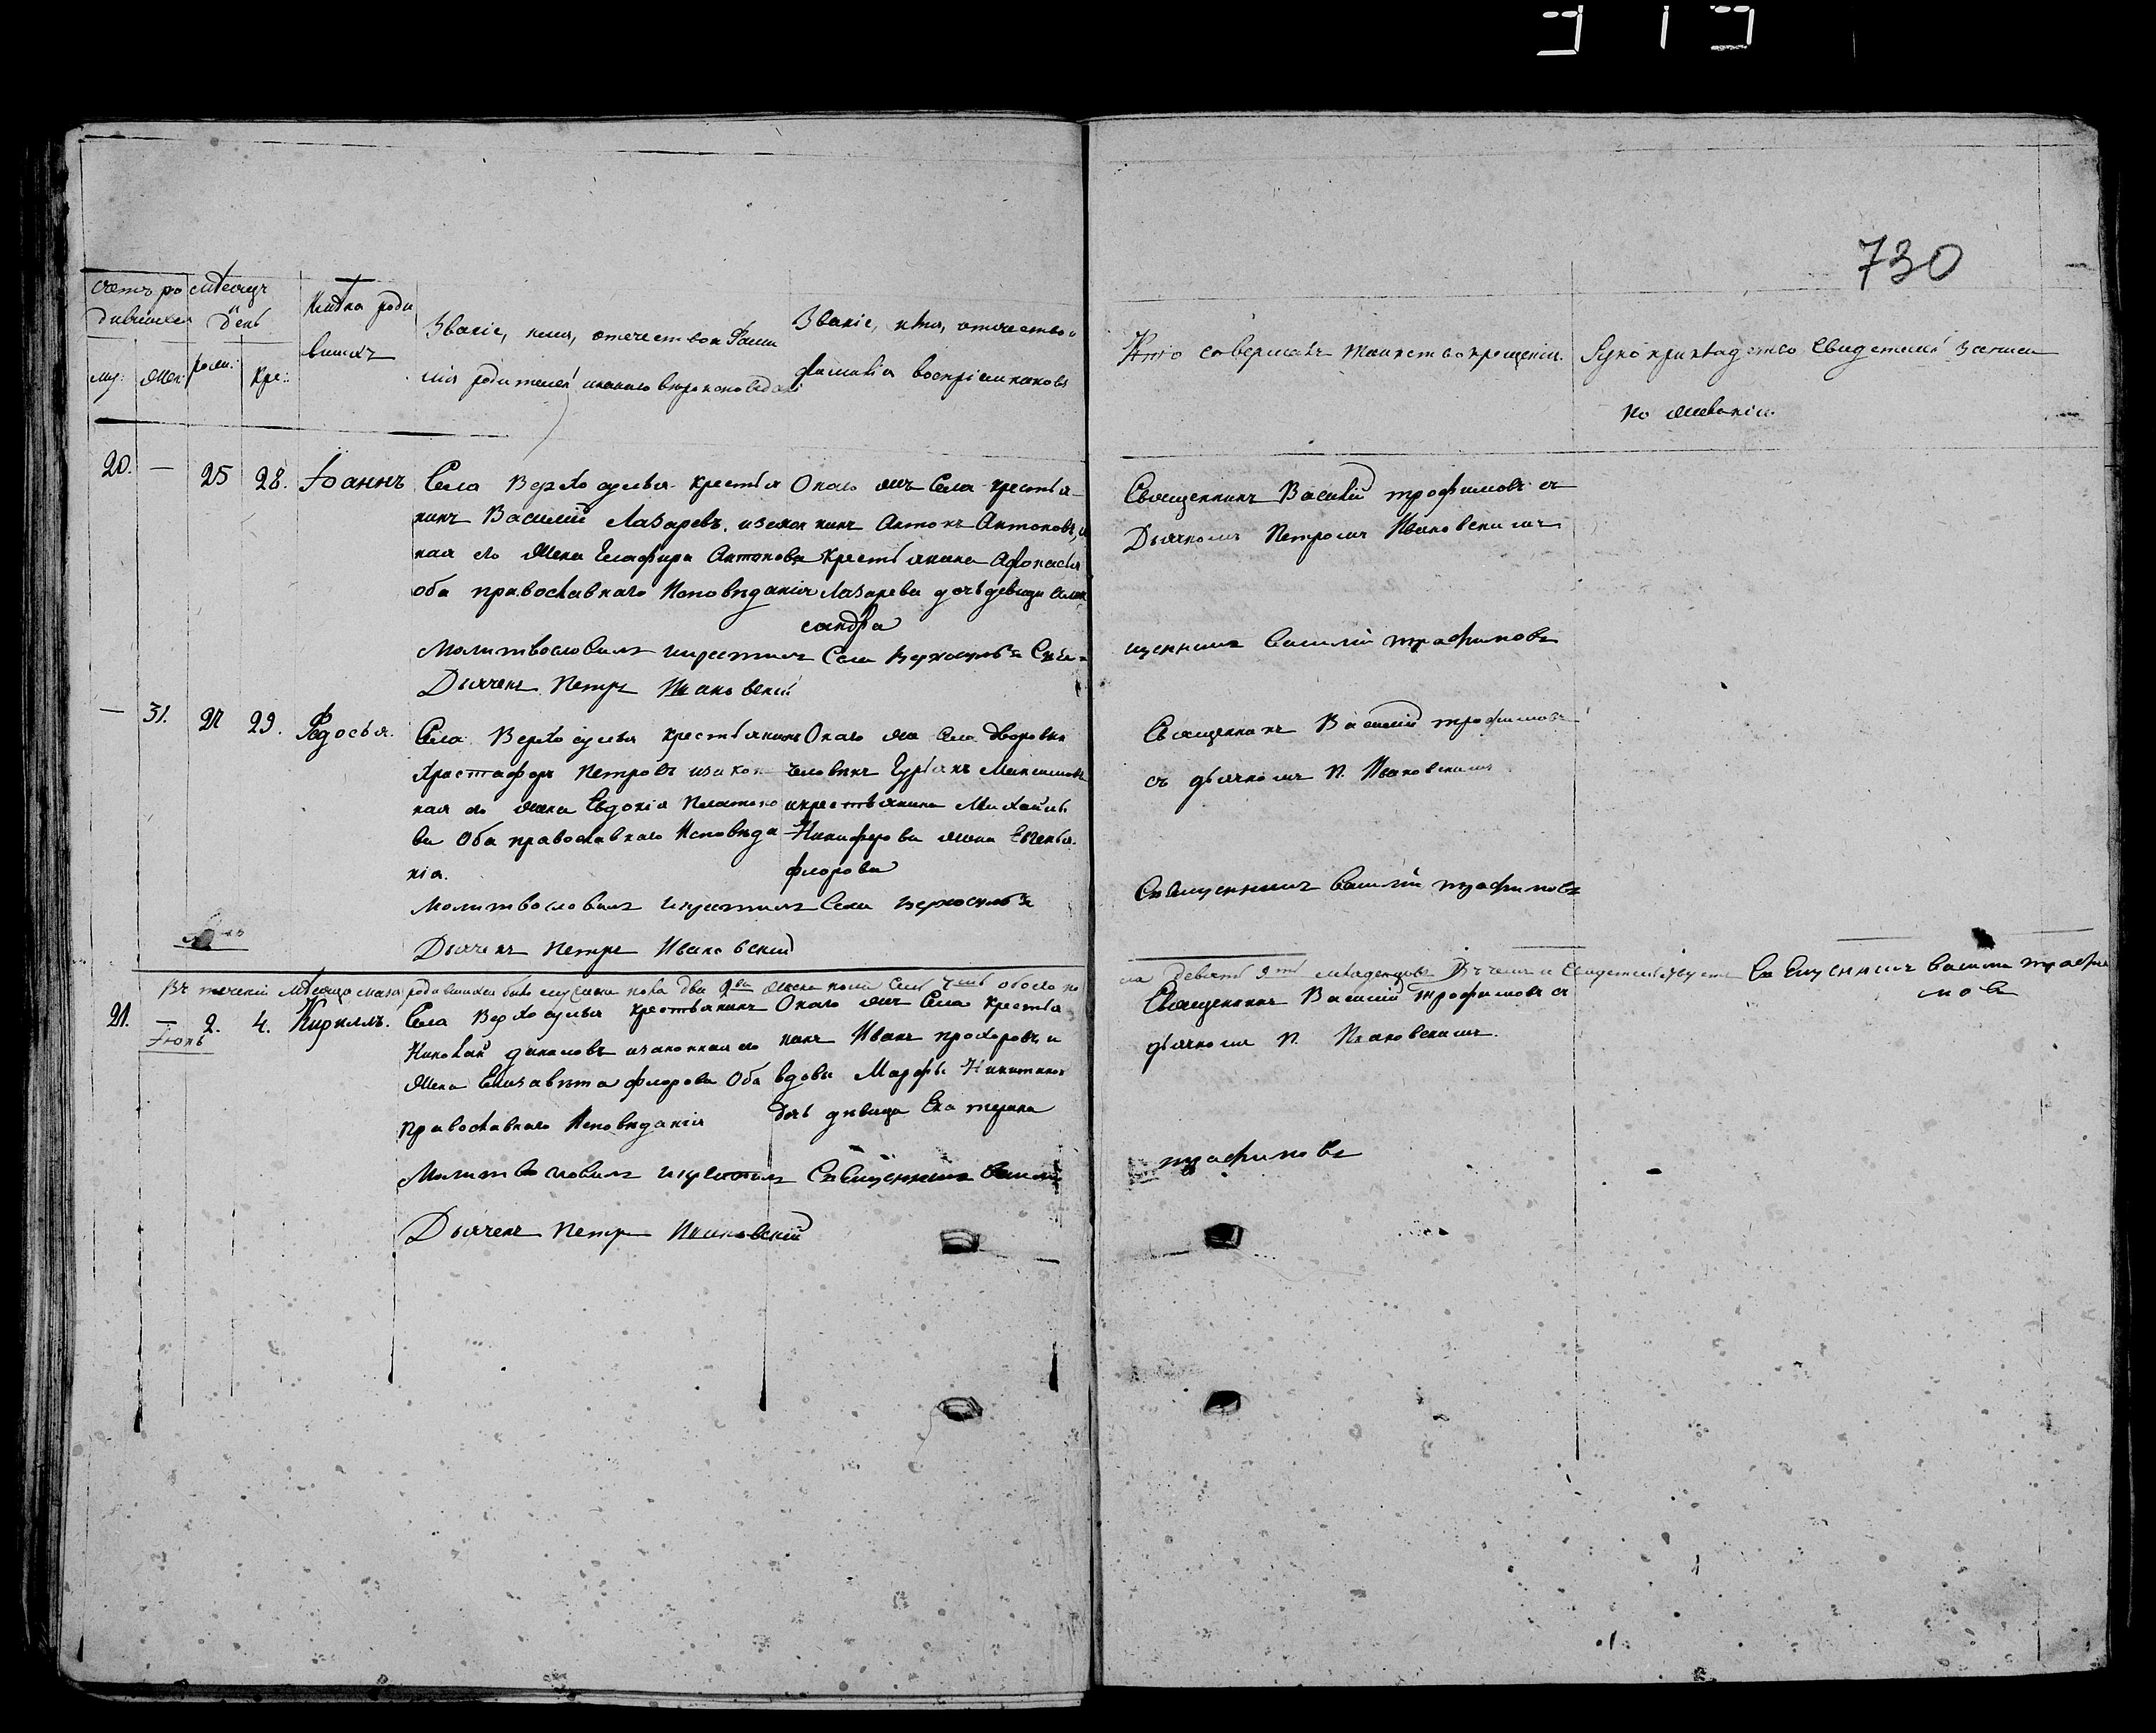 730
Счетъ ро
дившихся
Месяцъ
день
Имѧна роди
вшихъ
Званіе, имя, отечество и Фами
лія родителей и какого вероисповеданія
Званіе, имя, отечество и
фамилія воспріемниковъ
Кто совершалъ таинство крещенія.
Рукоприкладство свидетелей записи
по желанію.
муж: жен: рож: кре:
20. — 25 28. Іоаннъ
Села Верхосулья крестья
нинъ Василій Лазаревъ, изакон
ная его жена Глафира Антонова
оба православнаго Исповѣданія
Онаго жъ Села крестья
нинъ Антонъ Антоновъ, и
крестьянина Афонасья
Лазарева дочь девица Алек
сандра
Священникъ Василій трофимовъ съ
Дьячкомъ Петромъ Ивановскимъ
Молитвословилъ икрестилъ Села Верхосулья Свя
щенникъ Василій трафимовъ
Дьячекъ Петръ Ивановскій
— 31. 27 29. Федосья.
Села Верхосулья крестьянинъ
Христафоръ Петровъ изакон
ная его жена Евдокія Платоно
ва Оба православнаго Исповѣда
нія.
Онаго же Села дворовой
человѣкъ Гурьянъ Максимовъ
икрестьянина Михаилы
Никифорова жена Евгенья
флорова
Священникъ Василій трофимовъ
съ дьячкомъ П. Ивановскимъ
Молитвословилъ икрестилъ Села Верхосулья
Священникъ Василій трафимовъ
Дьячекъ Петръ Ивановскій
Въ теченіи Месяца маія родившихся было мужеска пола два 2ва женска пола семь 7мь обоего по
ла девять 9ть младенцовъ Въ чемъ и Свидетельствуемъ Священникъ Василій трафи
мовъ
21. — 2. 4. Кириллъ.
Іюнь
Села Верхосулья крестьянинъ
Николай даниловъ изаконная его
жена Елизавѣта флорова Оба
православнаго Исповѣданія
Онаго жъ Села крестья
нинъ Иванъ прохоровъ и
вдовы Марфы Никитиной
дочь дѣвица Екатерина
Священникъ Василій трофимовъ съ
дьячкомъ П. Ивановскимъ.
Молитвословилъ икрестилъ Священникъ Василій
трафимовъ
Дьячекъ Петръ Ивановскій